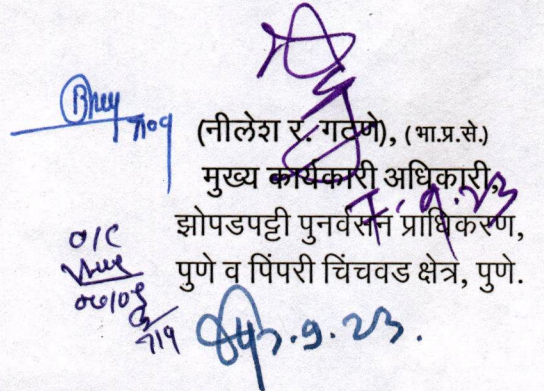 (नीलेश र. गटणे), (भा.प्र.से.)
मुख्य कार्यकारी अधिकारी,
7.9.23
झोपडपट्टी पुनर्वसन प्राधिकरण,
पुणे व पिंपरी चिंचवड क्षेत्र, पुणे.
O/C
7/9
7.9.23.